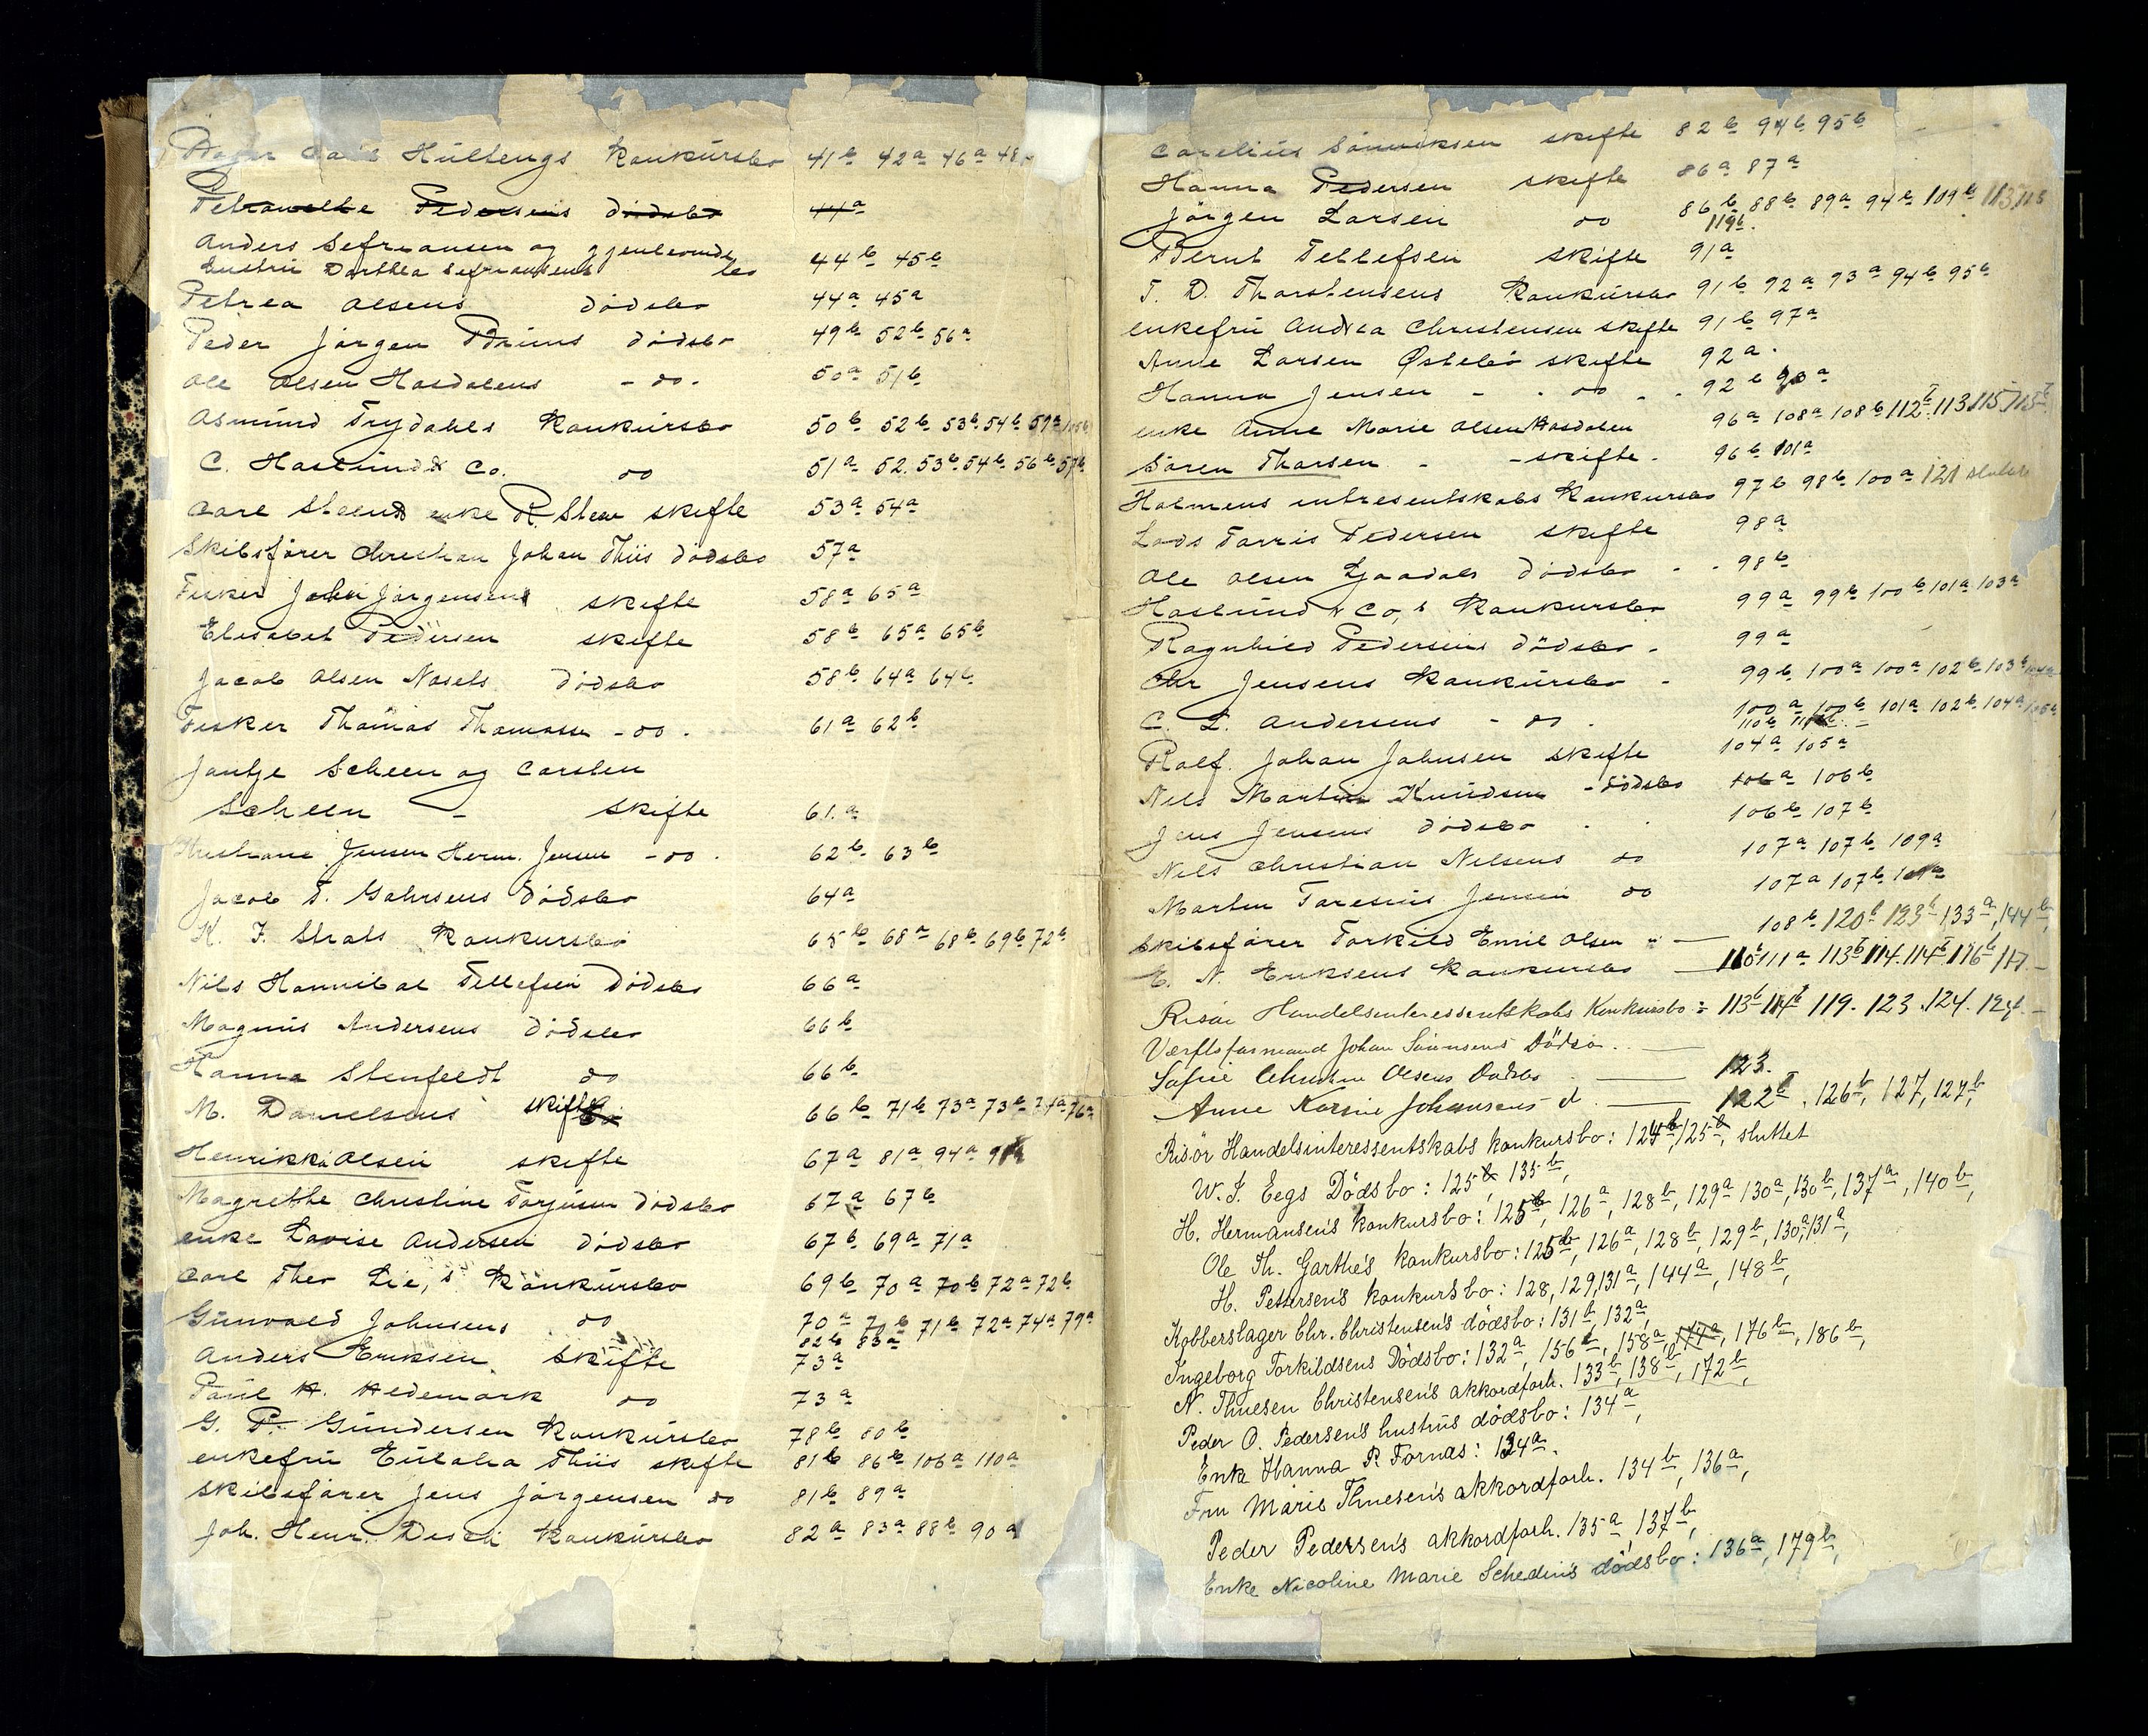 Hültengs Konkürsbo 41b 42a 46a 48
Petronelle Pedersens dödsbo 44a
Anders Sefriansen og gjenlevende
Hustrü Dorthea Sefriansens bo 44b 45b
Petrea Olsens dödsbo 44a 45a
Peder Jörgen Brüns dödsbo 49b 52b 56a
Ole Olsen Hasdalens - do - 50a 51b
Asmünd Trydahls Konkürsbo 50b 52b 53b 54b 57a
C. Haslünd & Co. do 51a 52. 53b 54b 56b 57b
Carl Steens enke R. Steen skifte 53a 54a
Skibsförer Christian Johan Thiis dödsbo 57a
Fisker John Jörgensens skifte 58a 65a
Elisabet Pedersen skifte 58b 65a 65b
Jacob Olsen Nasets dödsbo 58b 64a 64b
Fisker Thomas Thomassen - do - 61a 62b
Jantje Scheen og Carsten
Scheen - skifte 61.a
Jensen Herm. Jensen - do - 62b 63b
Jacob T. Gahrsens dödsbo 64a
K. F. Strats Konkursbo 65b 68a 68b 69b 72b
Nils Hannibal Tellefsen dödsbo 66a
Magnus Andersens dödsbo 66b
Hanna Stenfeldt do 66b
M. Danielsens skifte 66b 71b 73a 73b 74a 76a
Henrikka Olsen skifte 67a 81a 94a
Magrethe Christine Torjusen dödsbo 67a 67b
enke Lovise Andersen dödsbo 67b 69a 71a
Carl Theo Lie,s Konkürsbo 69b 70a 70b 72a 72b
Günvald Johnsens do 70a 70b 71b 72a 74a 79a
82b 83a
Anders Eriksen skifte 73a
Paül H. Hedemark do 73a
G. P. Gündersen Konkürsbo 78b 80b
enkefrü Eülalia Thiis skifte 81b 86b 106a 110a
skibsförer Jens Jörgensen do 81b 89a
Joh. Henr. Konkürsbo 82a 83a 88b 90a
Carelius Sönniksen skifte 82b 94b 95b
Hanna Pedersen skifte 86a 87a
Jörgen Larsen do 86b 88b 89a 94b 109b 113
119b.
Bernt Tellefsen skifte 91a
T. D. Thorstensens Konkürsbo 91b 92a 93a 94b 95b
enkefrü Andrea Christensen skifte 91b 97a
Anne Larsen Östebö skifte 92a.
Hanna Jensen - - do - - 92b 93a
enke Anne Marie Olsen Hasdalen 96a 108a 108b 112b. 113 115 115b
Sören Thorsen - - skifte - 96b 101a
Holmens intresentskabs Konkursbo 97b 98b 100a 121 sluttet
Lods Torris Pedersen skifte 98a
Ole Olsen dödsbo - - 98b
Haslünd & Co,s Konkursbo 99a 99b 100b 101a 103a
Ragnhild Pedersens dödsbo - 99a
Chr Jensens Konkürsbo - 99b 100a 100a 102b 103b
C. L. Andersens - do - 100a 100b 101a 102b 104a 105a
110b
Rolf Johan Johnsen skifte 104a 105a
Nils Martin Knüdsen - dödsbo 106a 106b
Jens Jensens dödsbo - - 106b 107b
Nils Christian Nilsens do 107a 107b 109a
Marten Taresius Jensen do 107a 107b
skibsförer Torkild Emil Olsen " — 108b 120b 123b 133a, 144b,
E. N. Eriksens Konkursbo — 110b 111a 113b 114. 114b 116b 117 —
Risör Handelsinteressentskabs Konkursbo : 113b 114b 119. 123. 124. 124. —
Værftsformand Johan Dödsbo. . —
Safie Olsens Dödsbo — 123.
Anne Karine Johansens d — 122b, 126b, 127, 127b,
Risör Handelsinteressentskabs konkursbo: 124b, 125b, sluttet
W. J. Eegs Dödsbo: 125b, 135b,
H. Hermansen's konkursbo: 125b, 126a, 128b, 129a 130a, 130b, 137a, 140b,
Ole Th. Garthe's konkursbo: 125b, 126a, 128b, 129b, 130a, 131a,
H. Pettersen's konkursbo: 128, 129, 131a, 144a, 148b,
Kobberslager Chr. Christensen's dödsbo: 131b, 132a,
Ingeborg Torkildsens Dödsbo: 132a, 156b, 158a, 177a, 176b, 186b,
N. Thuesen Christensen's akkordforh. 133b, 138b, 172b,
Peder O. Pedersen's hustrus dödsbo: 134a,
Enke Hanna P. Fornæs: 134a.
Fru Marie Thuesen's akkordforh. 134b, 136a,
Peder Pedersen's akkordforh. 135a, 137b,
Enke Nicoline Marie Schedin's dödsbo: 136a, 179b,